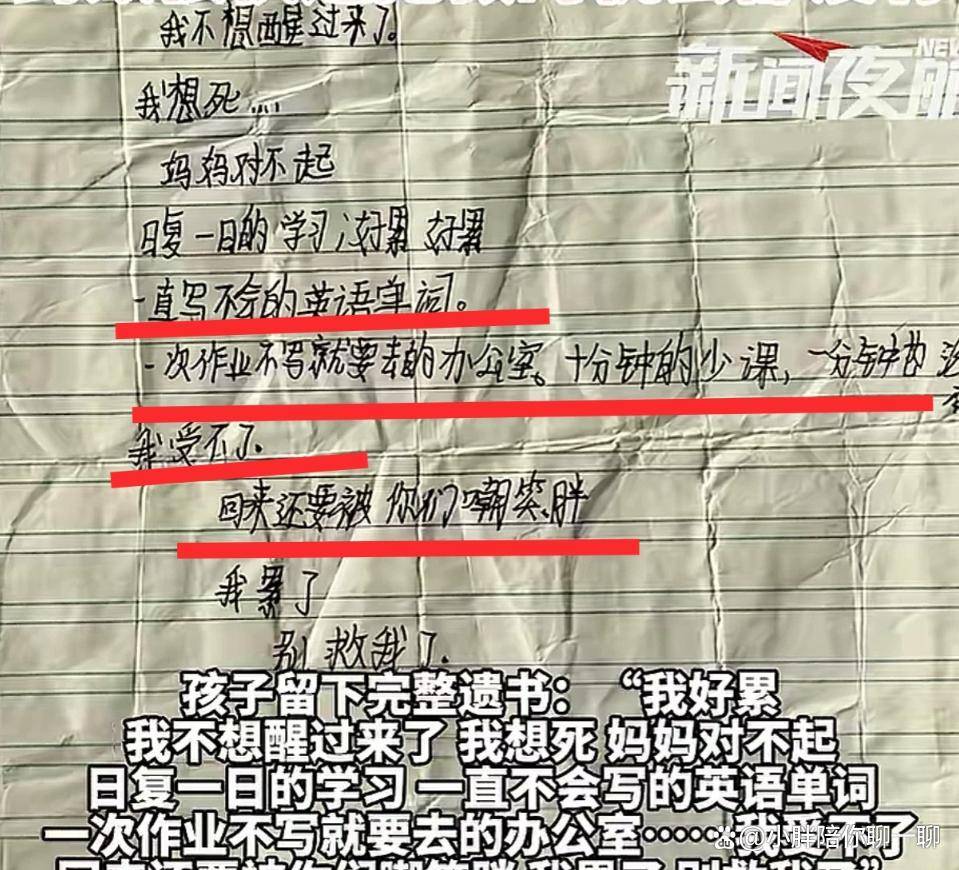 我不想醒过来了。
新闻夜航
NEW
我想死....
妈妈对不起
日复一日的学习 好累 好累
一直写不会的英语单词。
一次作业不写就要去的办公室。十分钟的少课，一分钟的
我受不了.
回来还要被你们嘲笑胖
我累了
别救我了.
孩子留下完整遗书：“我好累
我不想醒过来了 我想死 妈妈对不起
日复一日的学习 一直不会写的英语单词
一次作业不写就要去的办公室……我受不了
@小胖陪你聊一聊
回来还要被你们嘲笑胖 我累了 别救我了”